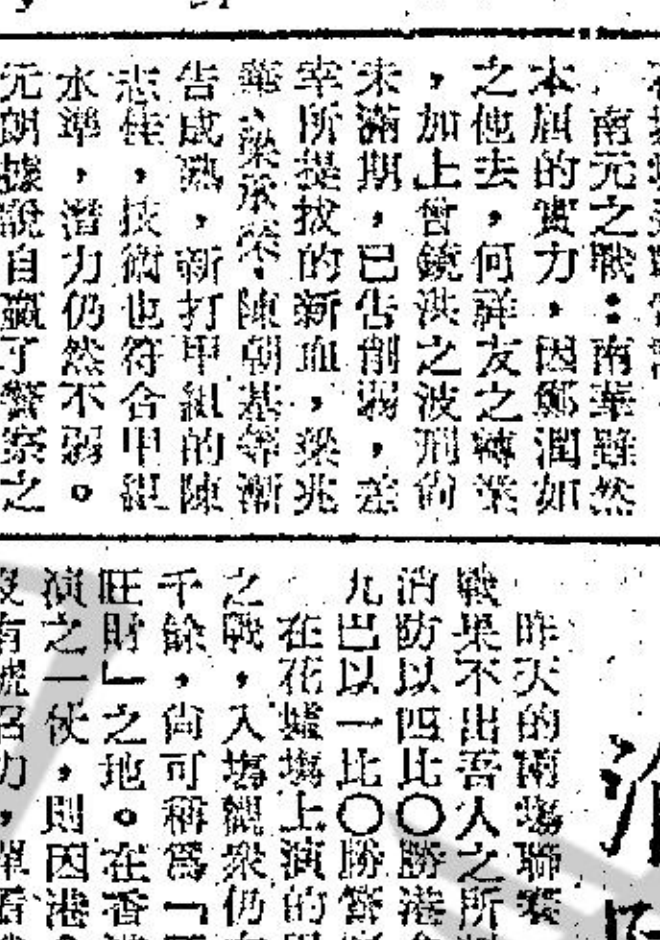 南元之戰：南華雖然
本屆的實力，因鄭潤如
之他去，何祥友之轉業
，加上曾鏡洪之波刑尙
未滿期，已告削弱，差
幸所提拔的新血，梁兆
華、梁承榮、陳朝基等漸
告成熟，新打甲組的陳
志佳，技術也符合甲組
水準，潛力仍然不弱。
元朗據說自贏了警察之
昨天的兩塲聯賽
戰果不出吾人之所
消防以四比〇勝港
九巴以一比〇勝警
在花墟塲上演的
之戰，入塲觀衆仍
千餘，尙可稱爲「
旺財」之地。在香
演之一仗，則因港
沒有號召力，單看